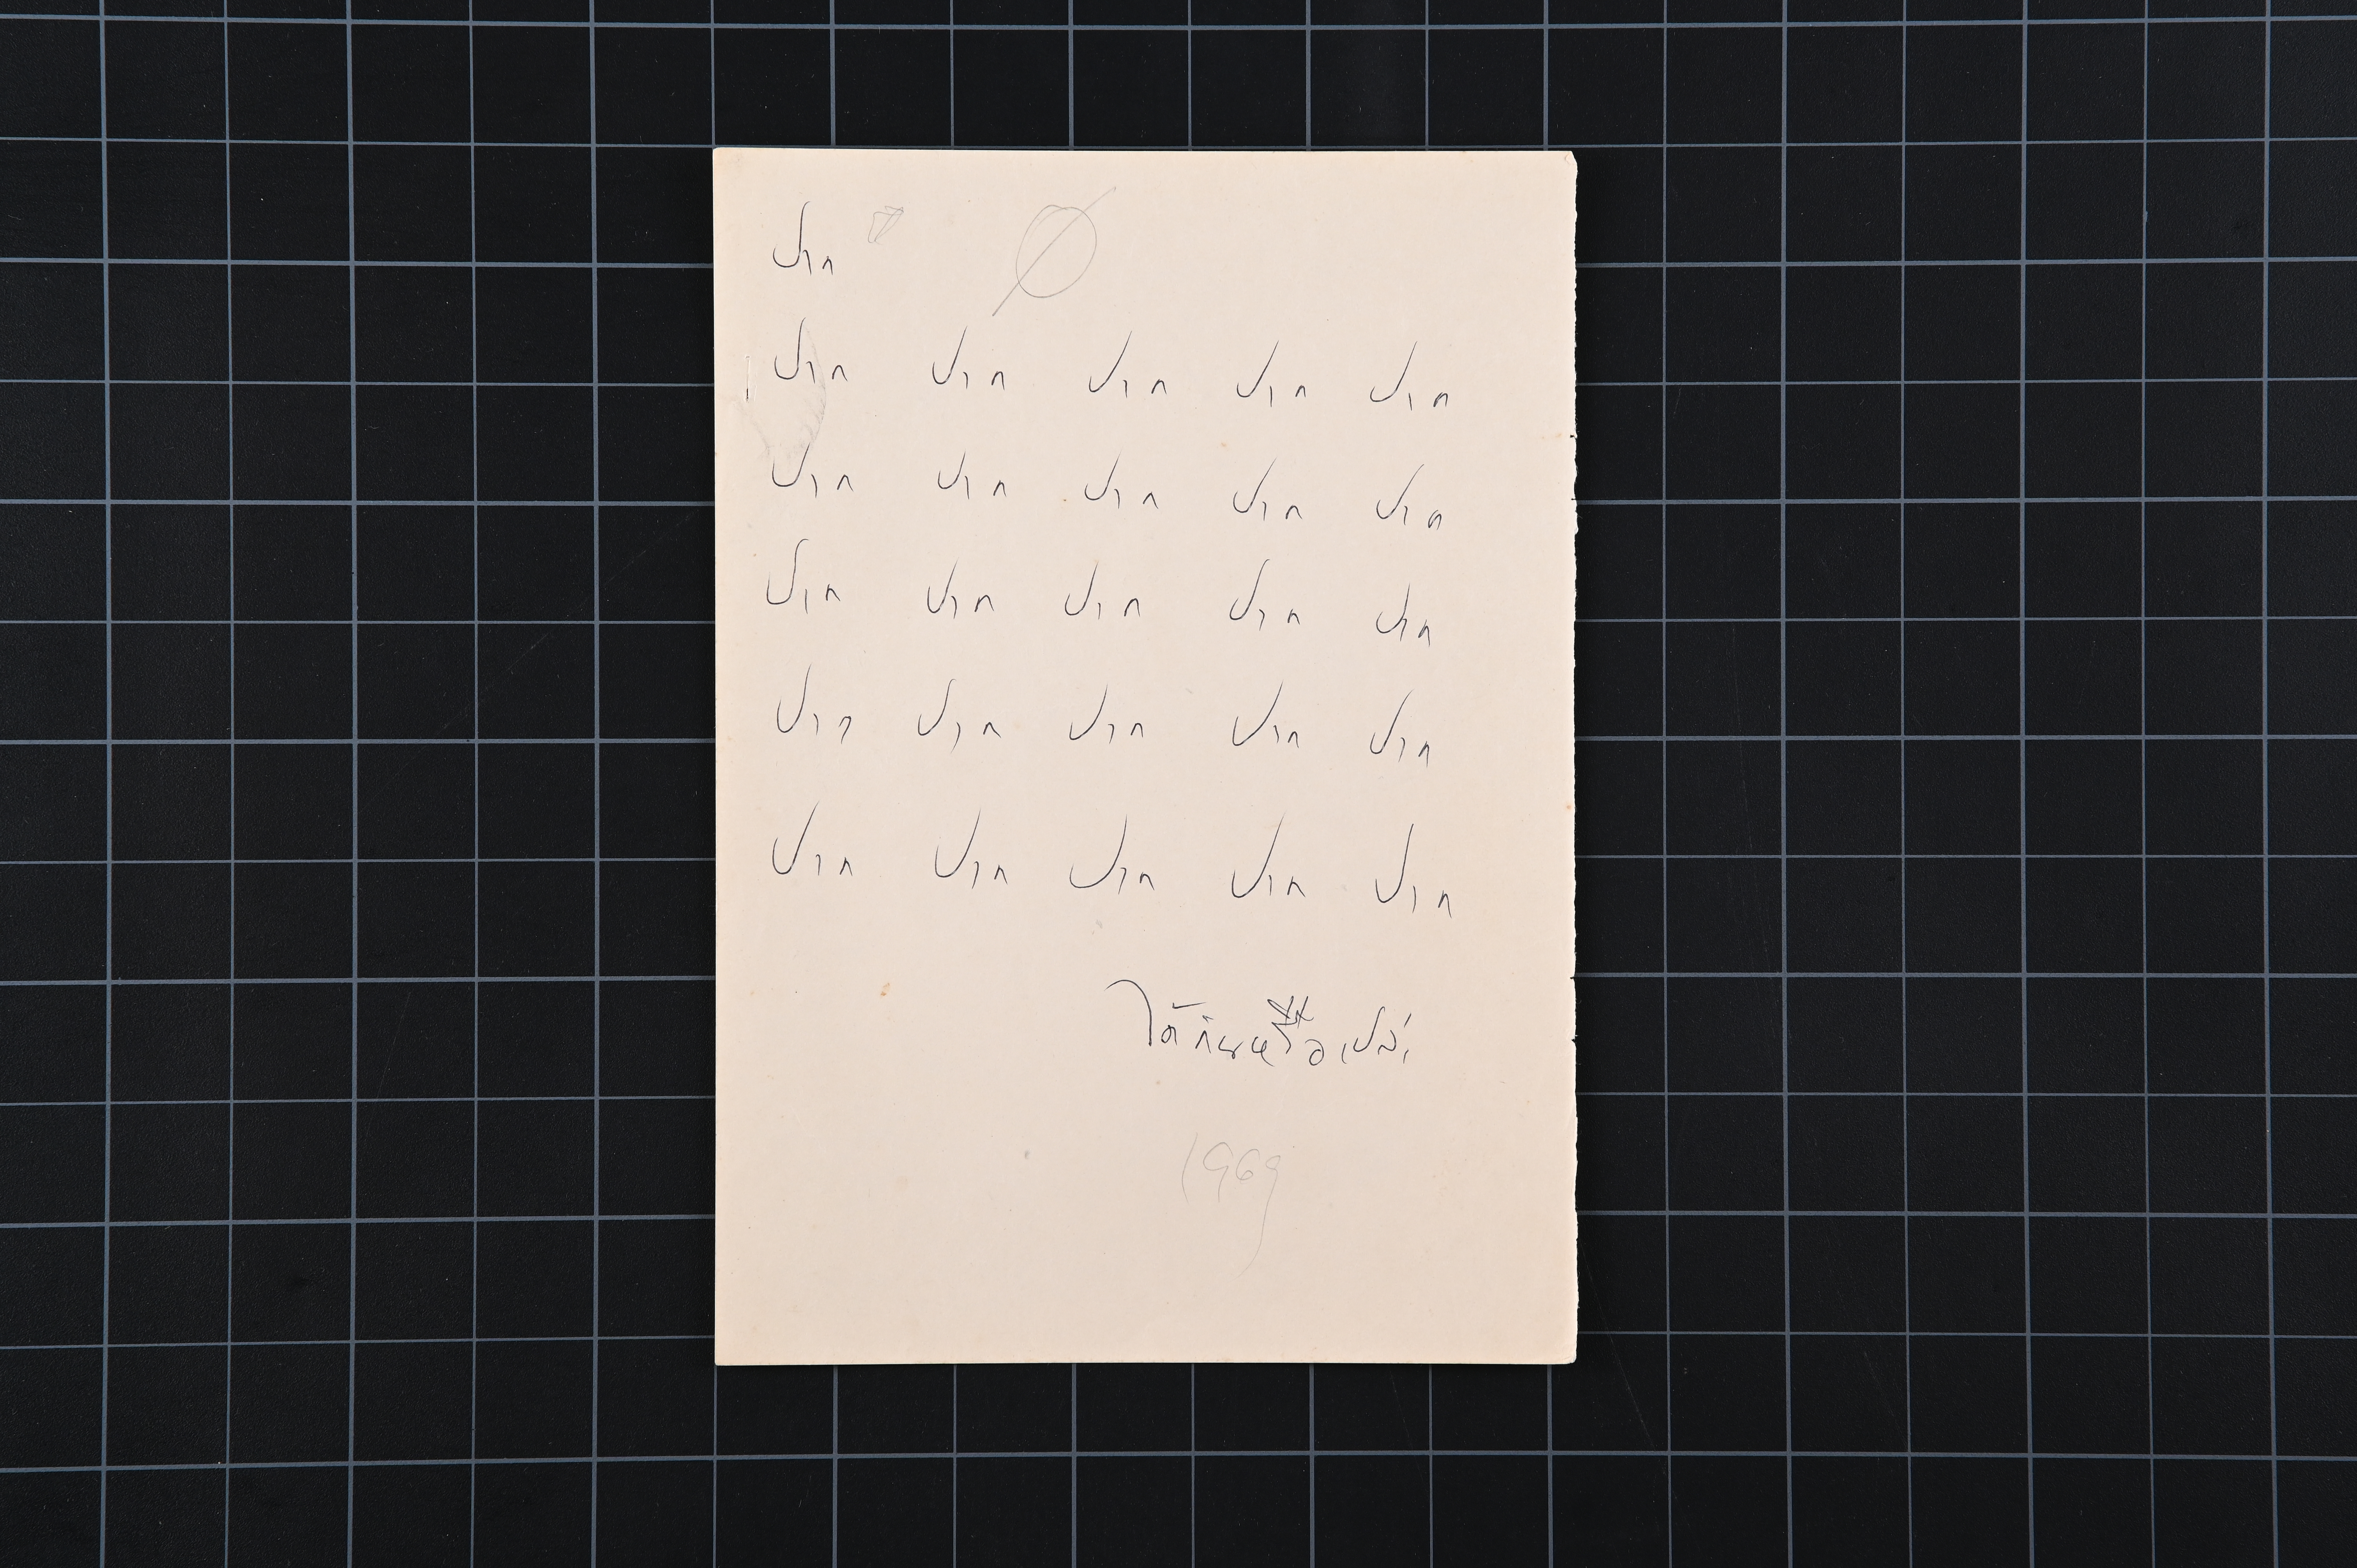 ปาก
ปาก ปาก ปาก ปาก ปาก
ปาก ปาก ปาก ปาก ปาก
ปาก ปาก ปาก ปาก ปาก
ปาก ปาก ปาก ปาก ปาก
ปาก ปาก ปาก ปาก ปาก
ได้กินหรือเปล่า
1969